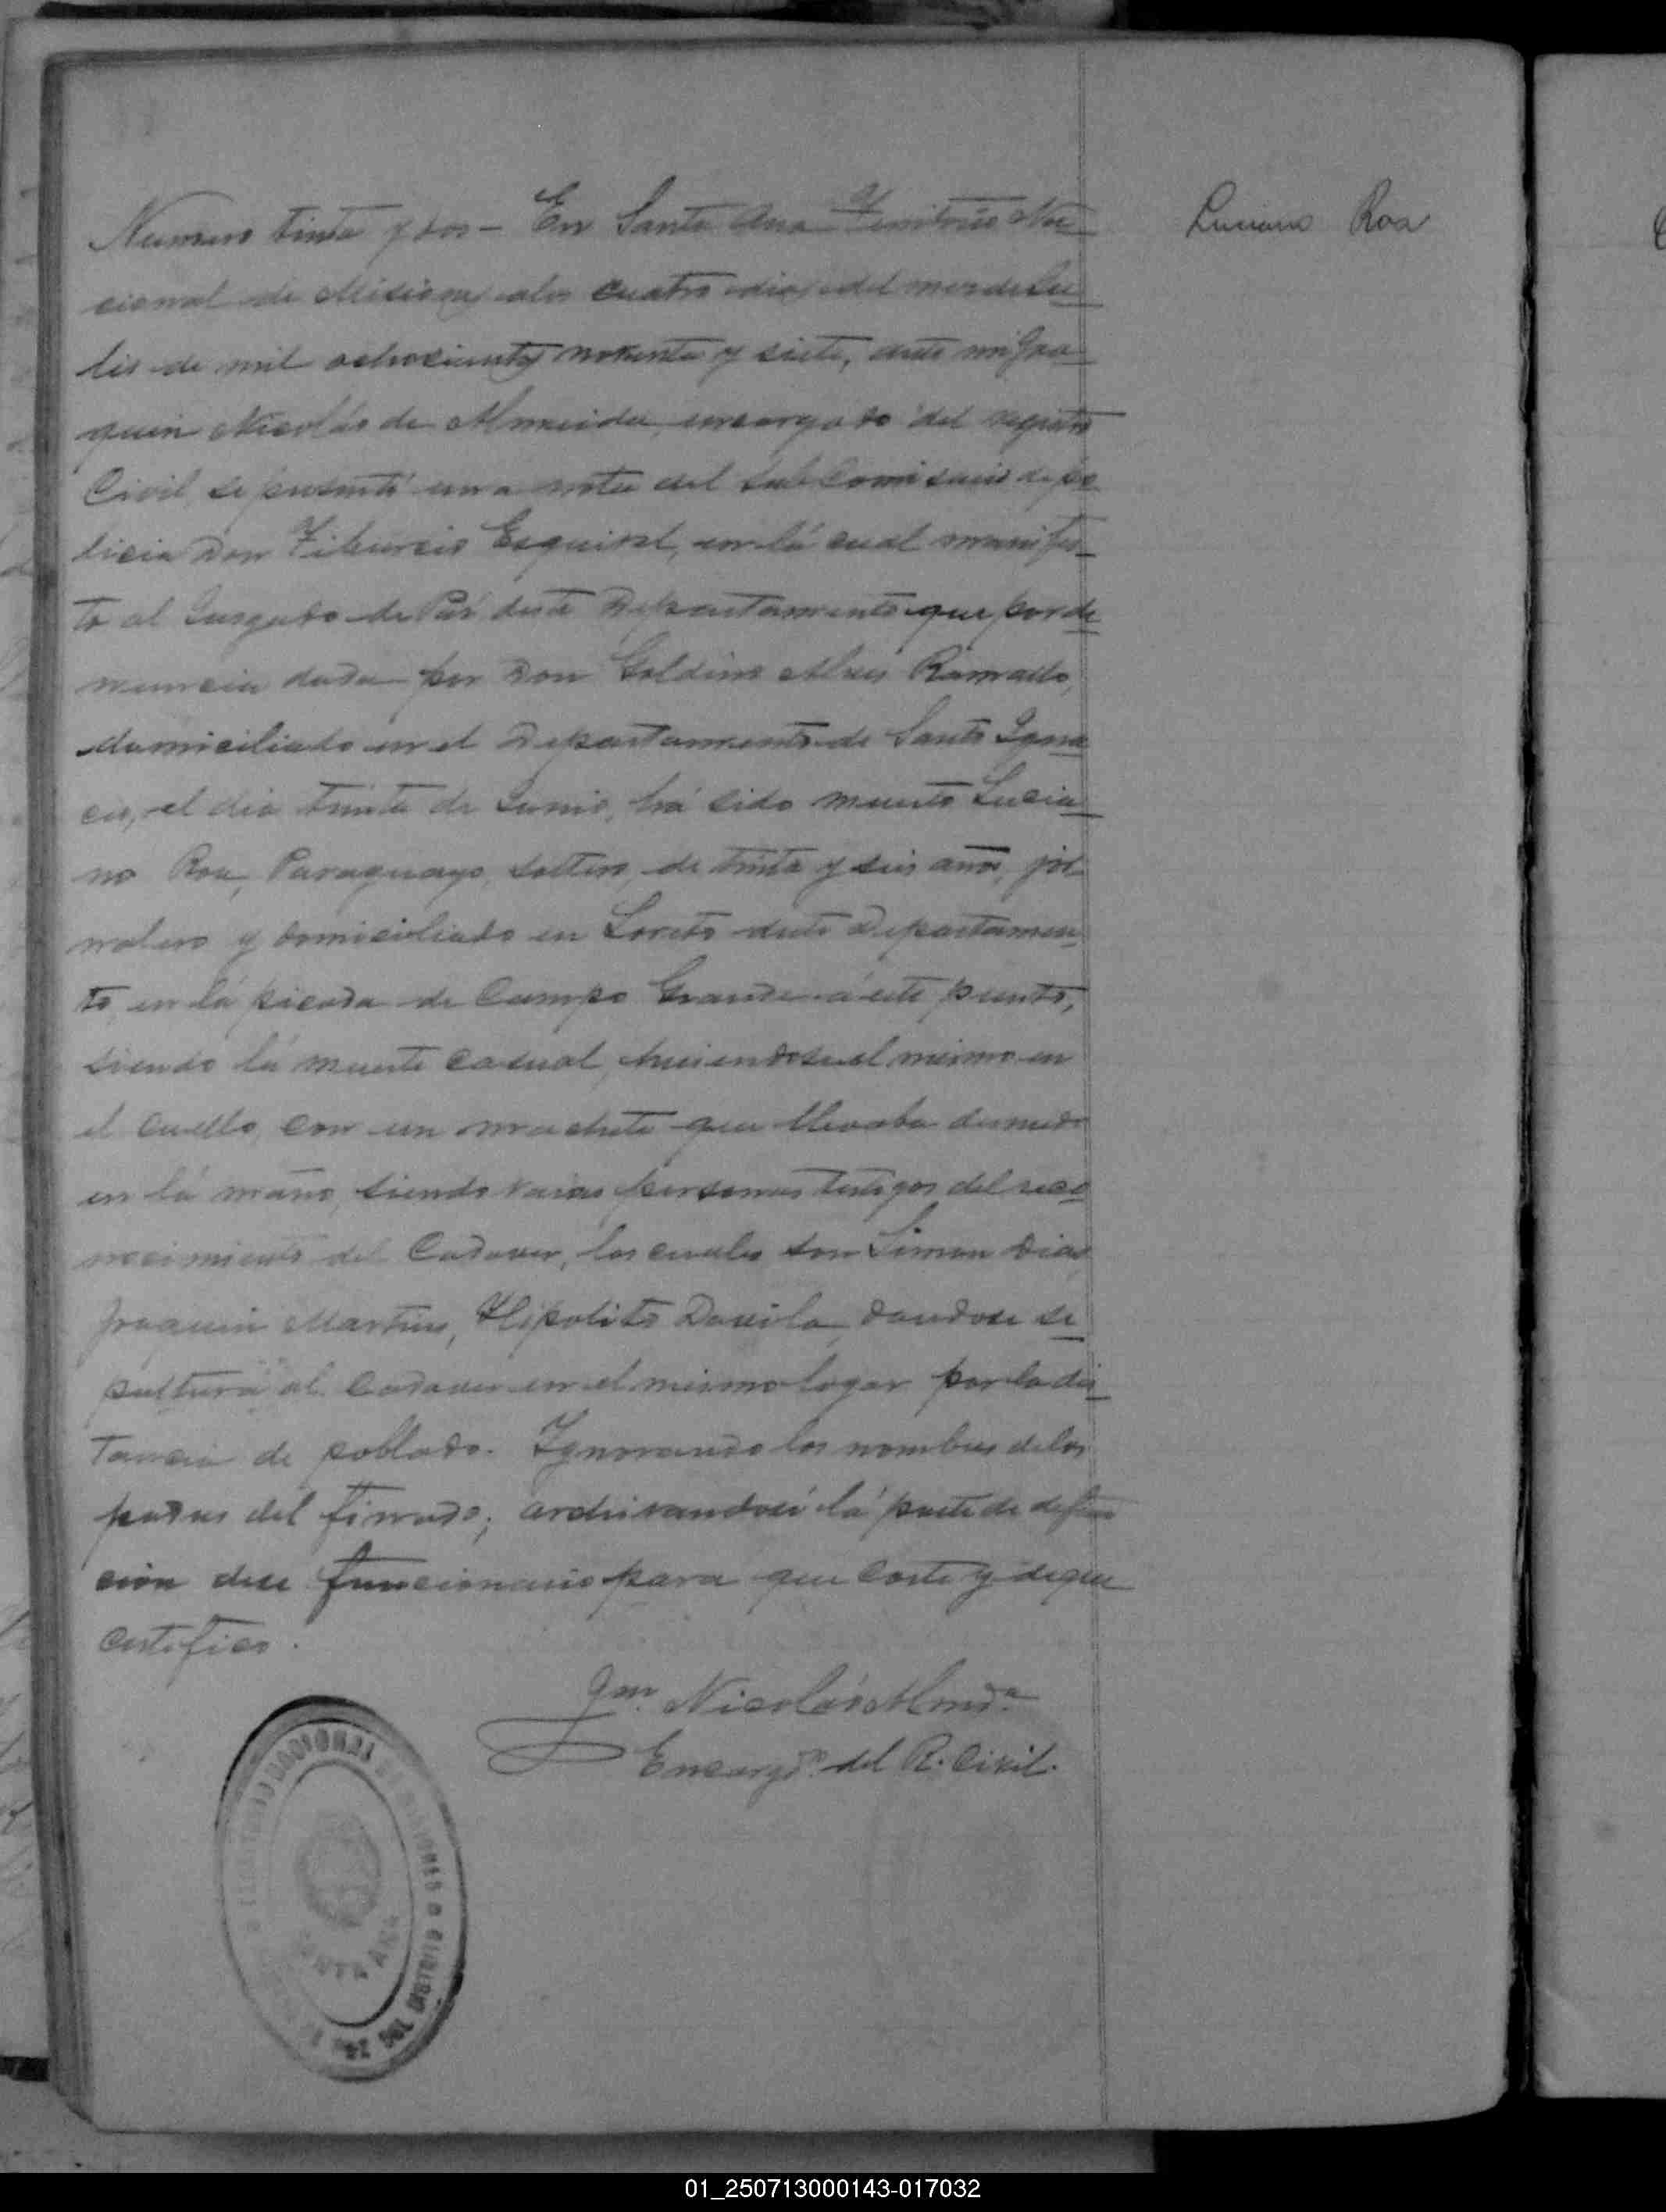 Numero trinta y dos - En Santa Ana Territorio Na
cional de Misiones, alos cuatro dias del mes de Ju
lio de mil ochocientos noventa y siete, ante mi Joa
quin Nicolás de Almeida, encargado del registro
Civil, se presentó una nota del Sub Comisario de po
licia Don Tiburcio Esquivel, en lá cual manifes
to al Jusgado de Pas deste Departamento que por de
nuncia dada por Don Galdino Alves Ramallo,
domiciliado en el Departamento de Santo Igna
cio, el dia trinta de Junio, há sido muerto Lucia
no Roa, Paraguayo, soltero, de trinta y seis anos, jor
nalero y domiciliado en Loreto deste Departamen
to, en lá picada de Campo Grande á este punto,
siendo lá muerte casual, hiriendose el mismo en
el cuello, con un machete que llevaba desnudo
en lá mano, siendo varias personas testigos del reco
nocimiento del Cadaver, los cuales son Simon Dias,
Joaquin Martins, Hipolito Davila, dandose se
pultura al Cadaver en el mismo lugar por la dis
tancia de poblado. Ignorando los nombres de los
padres del finado; archivandose lá parte de defun
cion dese funcionario para que coste y de que
certifico.
Jqm. Nicolás Almda.
Encargdo. del R. Civil.
Luciano Roa
TERRITORIO NACIONAL DE MISIONES
SANTA ANA
01_250713000143-017032